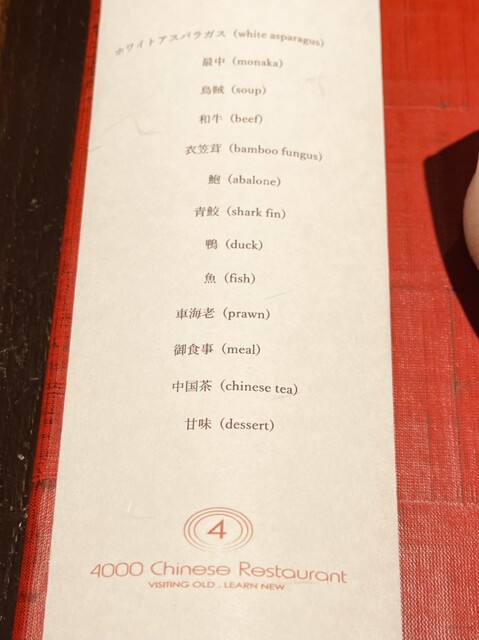 ホワイトアスパラガス (white asparagus)
最中 (monaka)
烏賊 (soup)
和牛 (beef)
衣笠茸 (bamboo fungus)
鮑 (abalone)
青鮫 (shark fin)
鴨 (duck)
魚 (fish)
車海老 (prawn)
御食事 (meal)
中国茶 (chinese tea)
甘味 (dessert)
4
4000 Chinese Restaurant
VISITING OLD . LEARN NEW